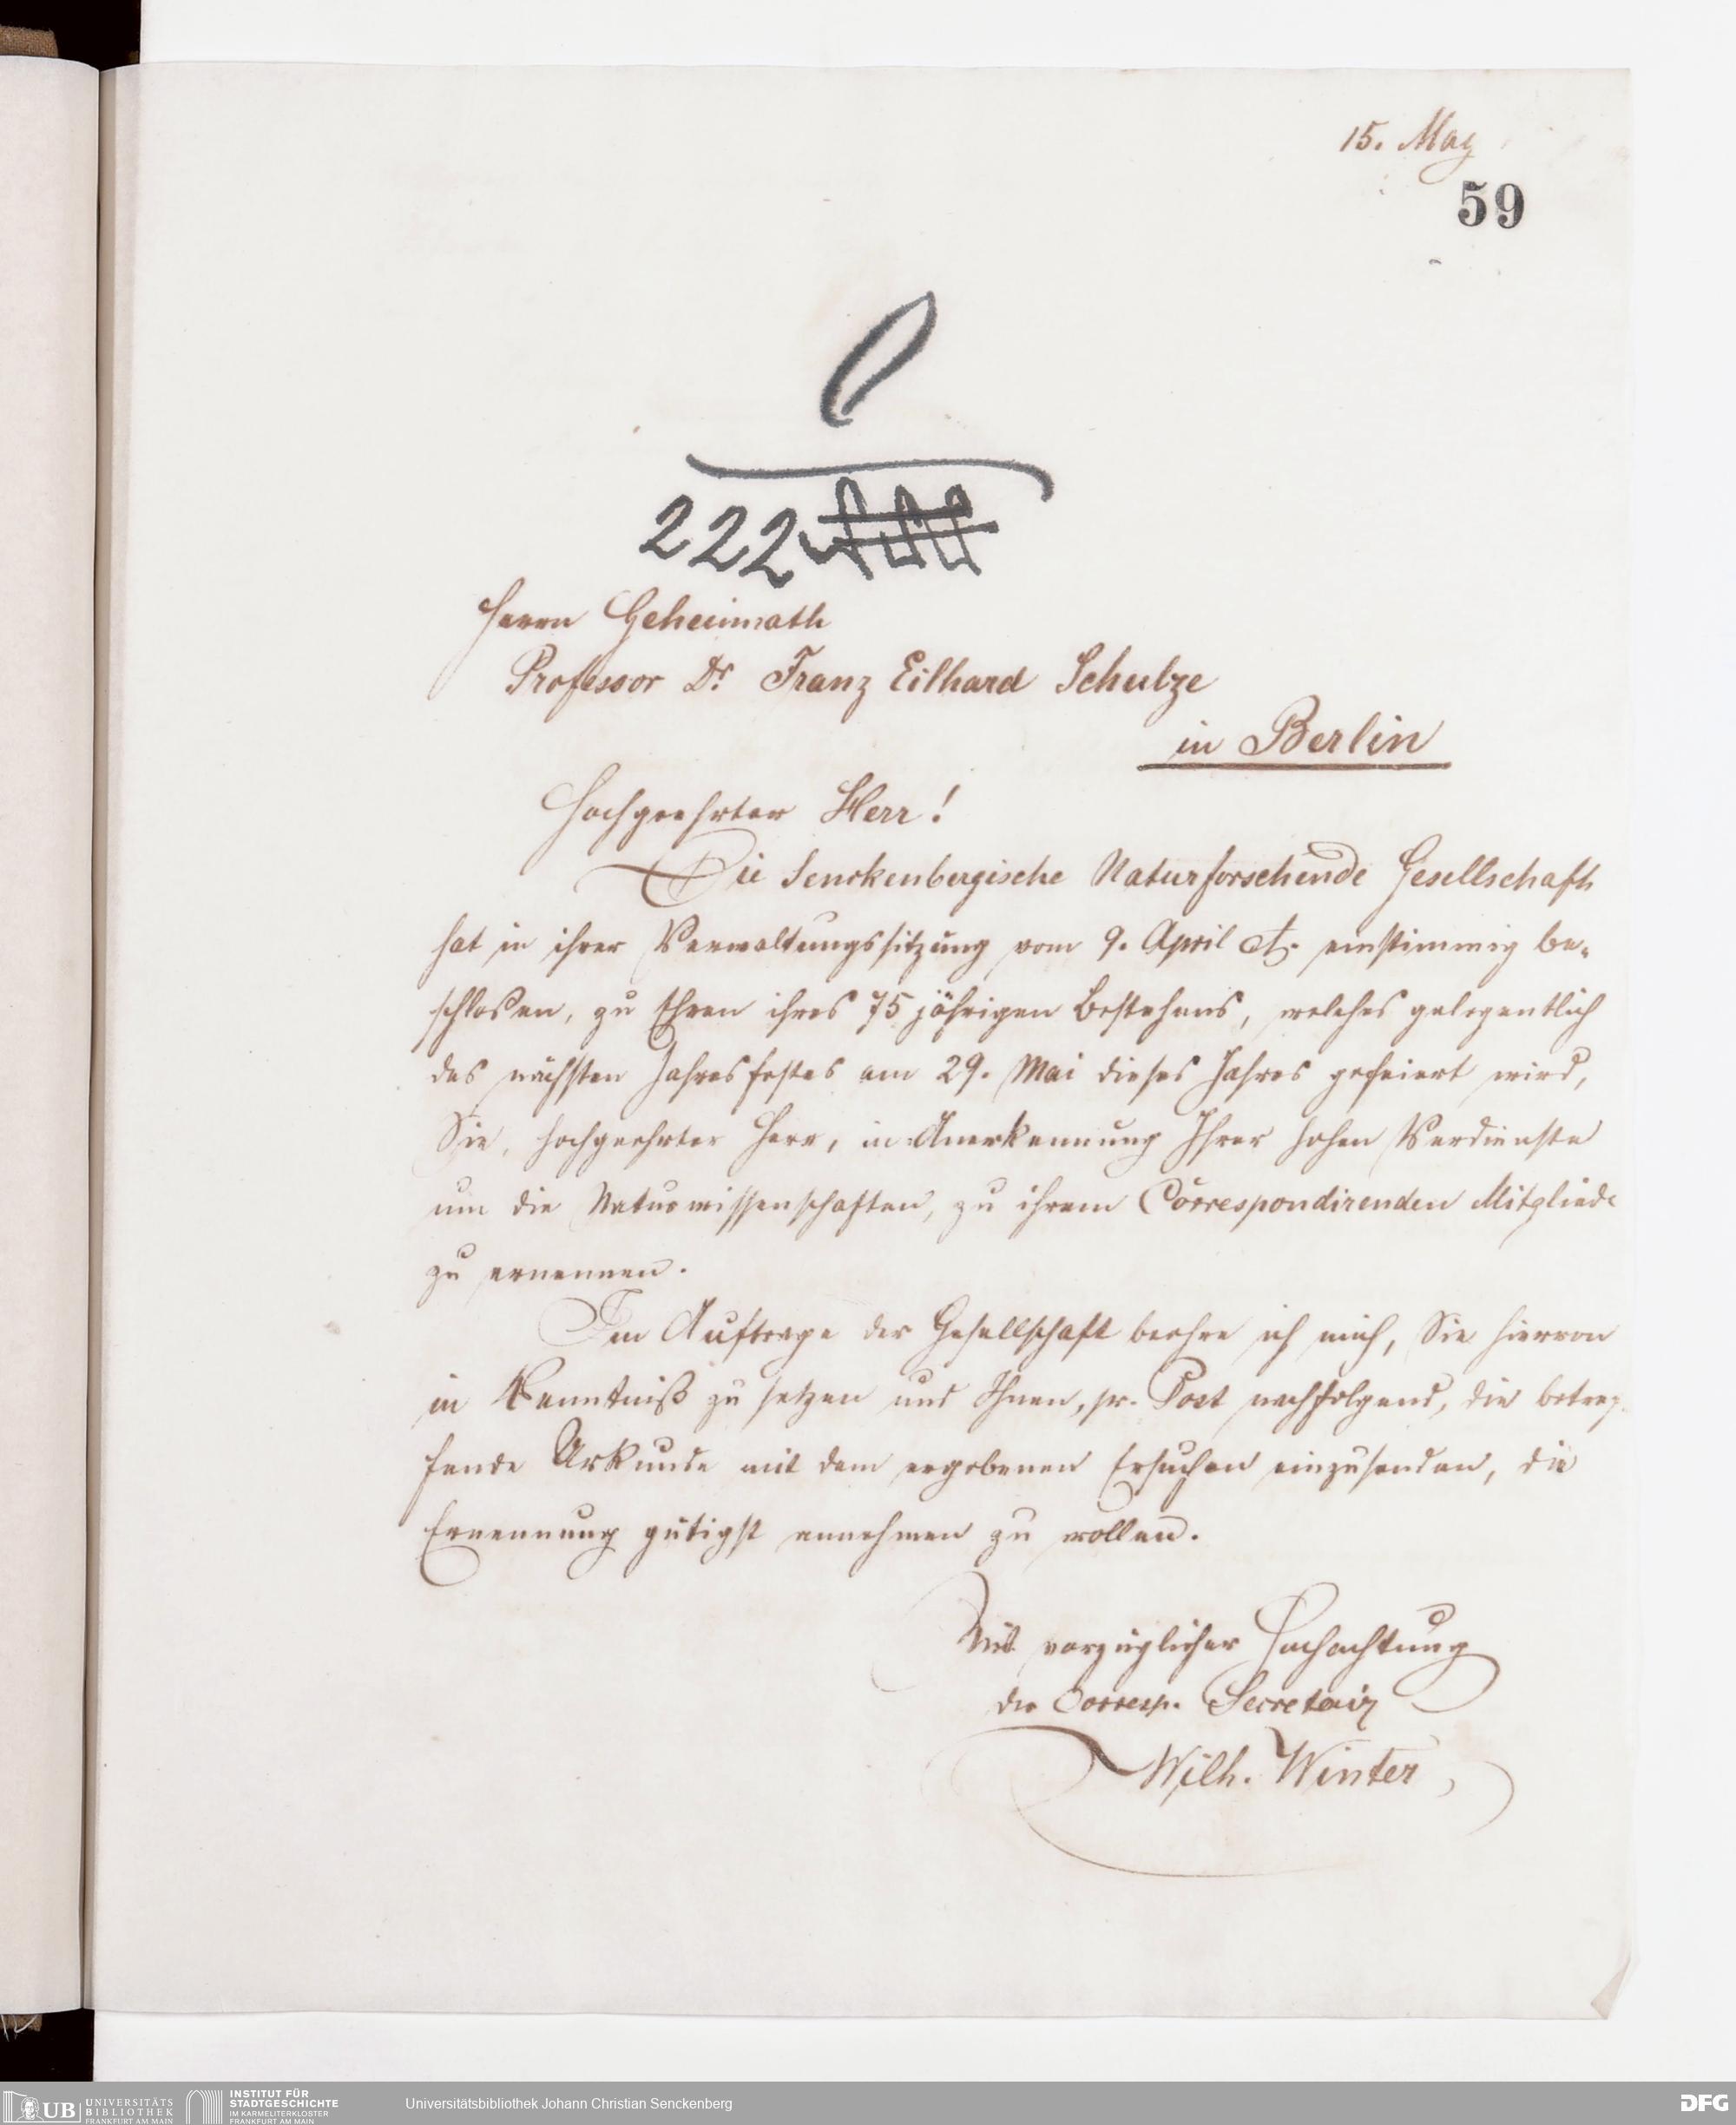 15. May
59
222
Herrn Geheimrath
Professor Dr. Franz Eilhard Schulze
in Berlin
Hochgeehrter Herr!
Die Senckenbergische Naturforschende Gesellschaft
hat in ihrer Verwaltungssitzung vom 9. April ct. einstimmig be-
schloßen, zu Ehren ihres 75 jährigen Bestehens, welches gelegentlich
des nächsten Jahresfestes am 29. Mai dieses Jahres gefeiert wird,
Sie, hochgeehrter Herr, in Anerkennung Ihrer hohen Verdienste
um die Naturwissenschaften, zu ihrem Correspondirenden Mitgliede
zu ernennen.
Im Auftrage der Gesellschaft beehre ich mich, Sie hiervon
in Kenntniß zu setzen und Ihnen, pr. Post nachfolgend, die betref-
fende Urkunde mit dem ergebenen Ersuchen einzusenden, die
Ernennung gütigst annehmen zu wollen.
Mit vorzüglicher Hochachtung
der Corresp. Secretair
Wilh. Winter,
UB UNIVERSITÄTS
BIBLIOTHEK
FRANKFURT AM MAIN
INSTITUT FÜR
STADTGESCHICHTE
IM KARMELITERKLOSTER
FRANKFURT AM MAIN
Universitätsbibliothek Johann Christian Senckenberg
DFG